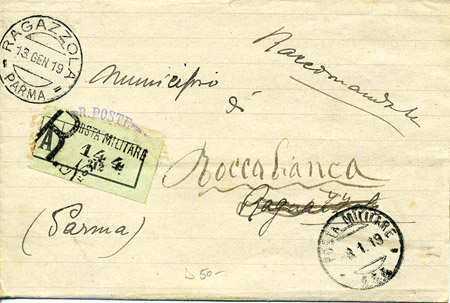 RAGAZZOLA
13 GEN 19
PARMA
Raccomandata
Municipio
di
R. POSTE
POSTA MILITARE
R
A
144
No
Roccabianca
Ragazzola
(Parma)
POSTA MILITARE
8.1.19
D 50-